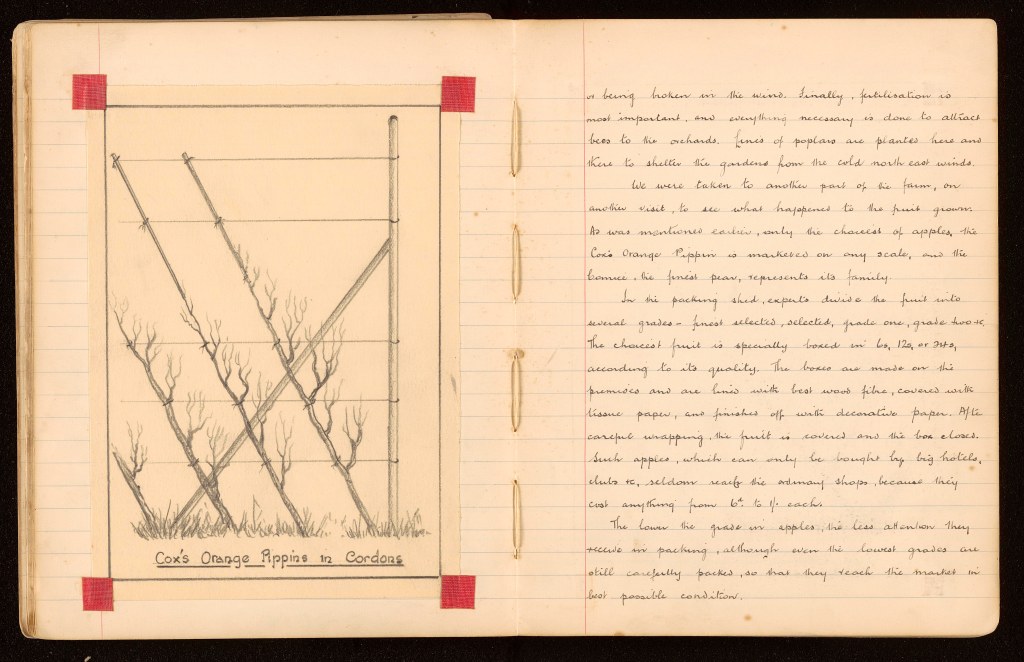 Cox's Orange Pippins in Cordons
or being broken in the wind. Finally, fertilisation is
most important, and everything necessary is done to attract
bees to the orchards. Lines of poplars are planted here and
there to shelter the gardens from the cold north east winds.
We were taken to another part of the farm, on
another visit, to see what happened to the fruit grown.
As was mentioned earlier, only the choicest of apples, the
Cox's Orange Pippin is marketed on any scale, and the
Comice, the finest pear, represents its family.
In the packing shed, experts divide the fruit into
several grades - finest selected, selected, grade one, grade two &c.
The choicest fruit is specially boxed in 6s, 12s, or 24s,
according to its quality. The boxes are made on the
premises and are lined with best wood fibre, covered with
tissue paper, and finished off with decorative paper. After
careful wrapping, the fruit is covered and the box closed.
Such apples, which can only be bought by big hotels,
clubs &c, seldom reach the ordinary shops, because they
cost anything from 6d to 1/- each.
The lower the grade in apples, the less attention they
receive in packing, although even the lowest grades are
still carefully packed, so that they reach the market in
best possible condition.